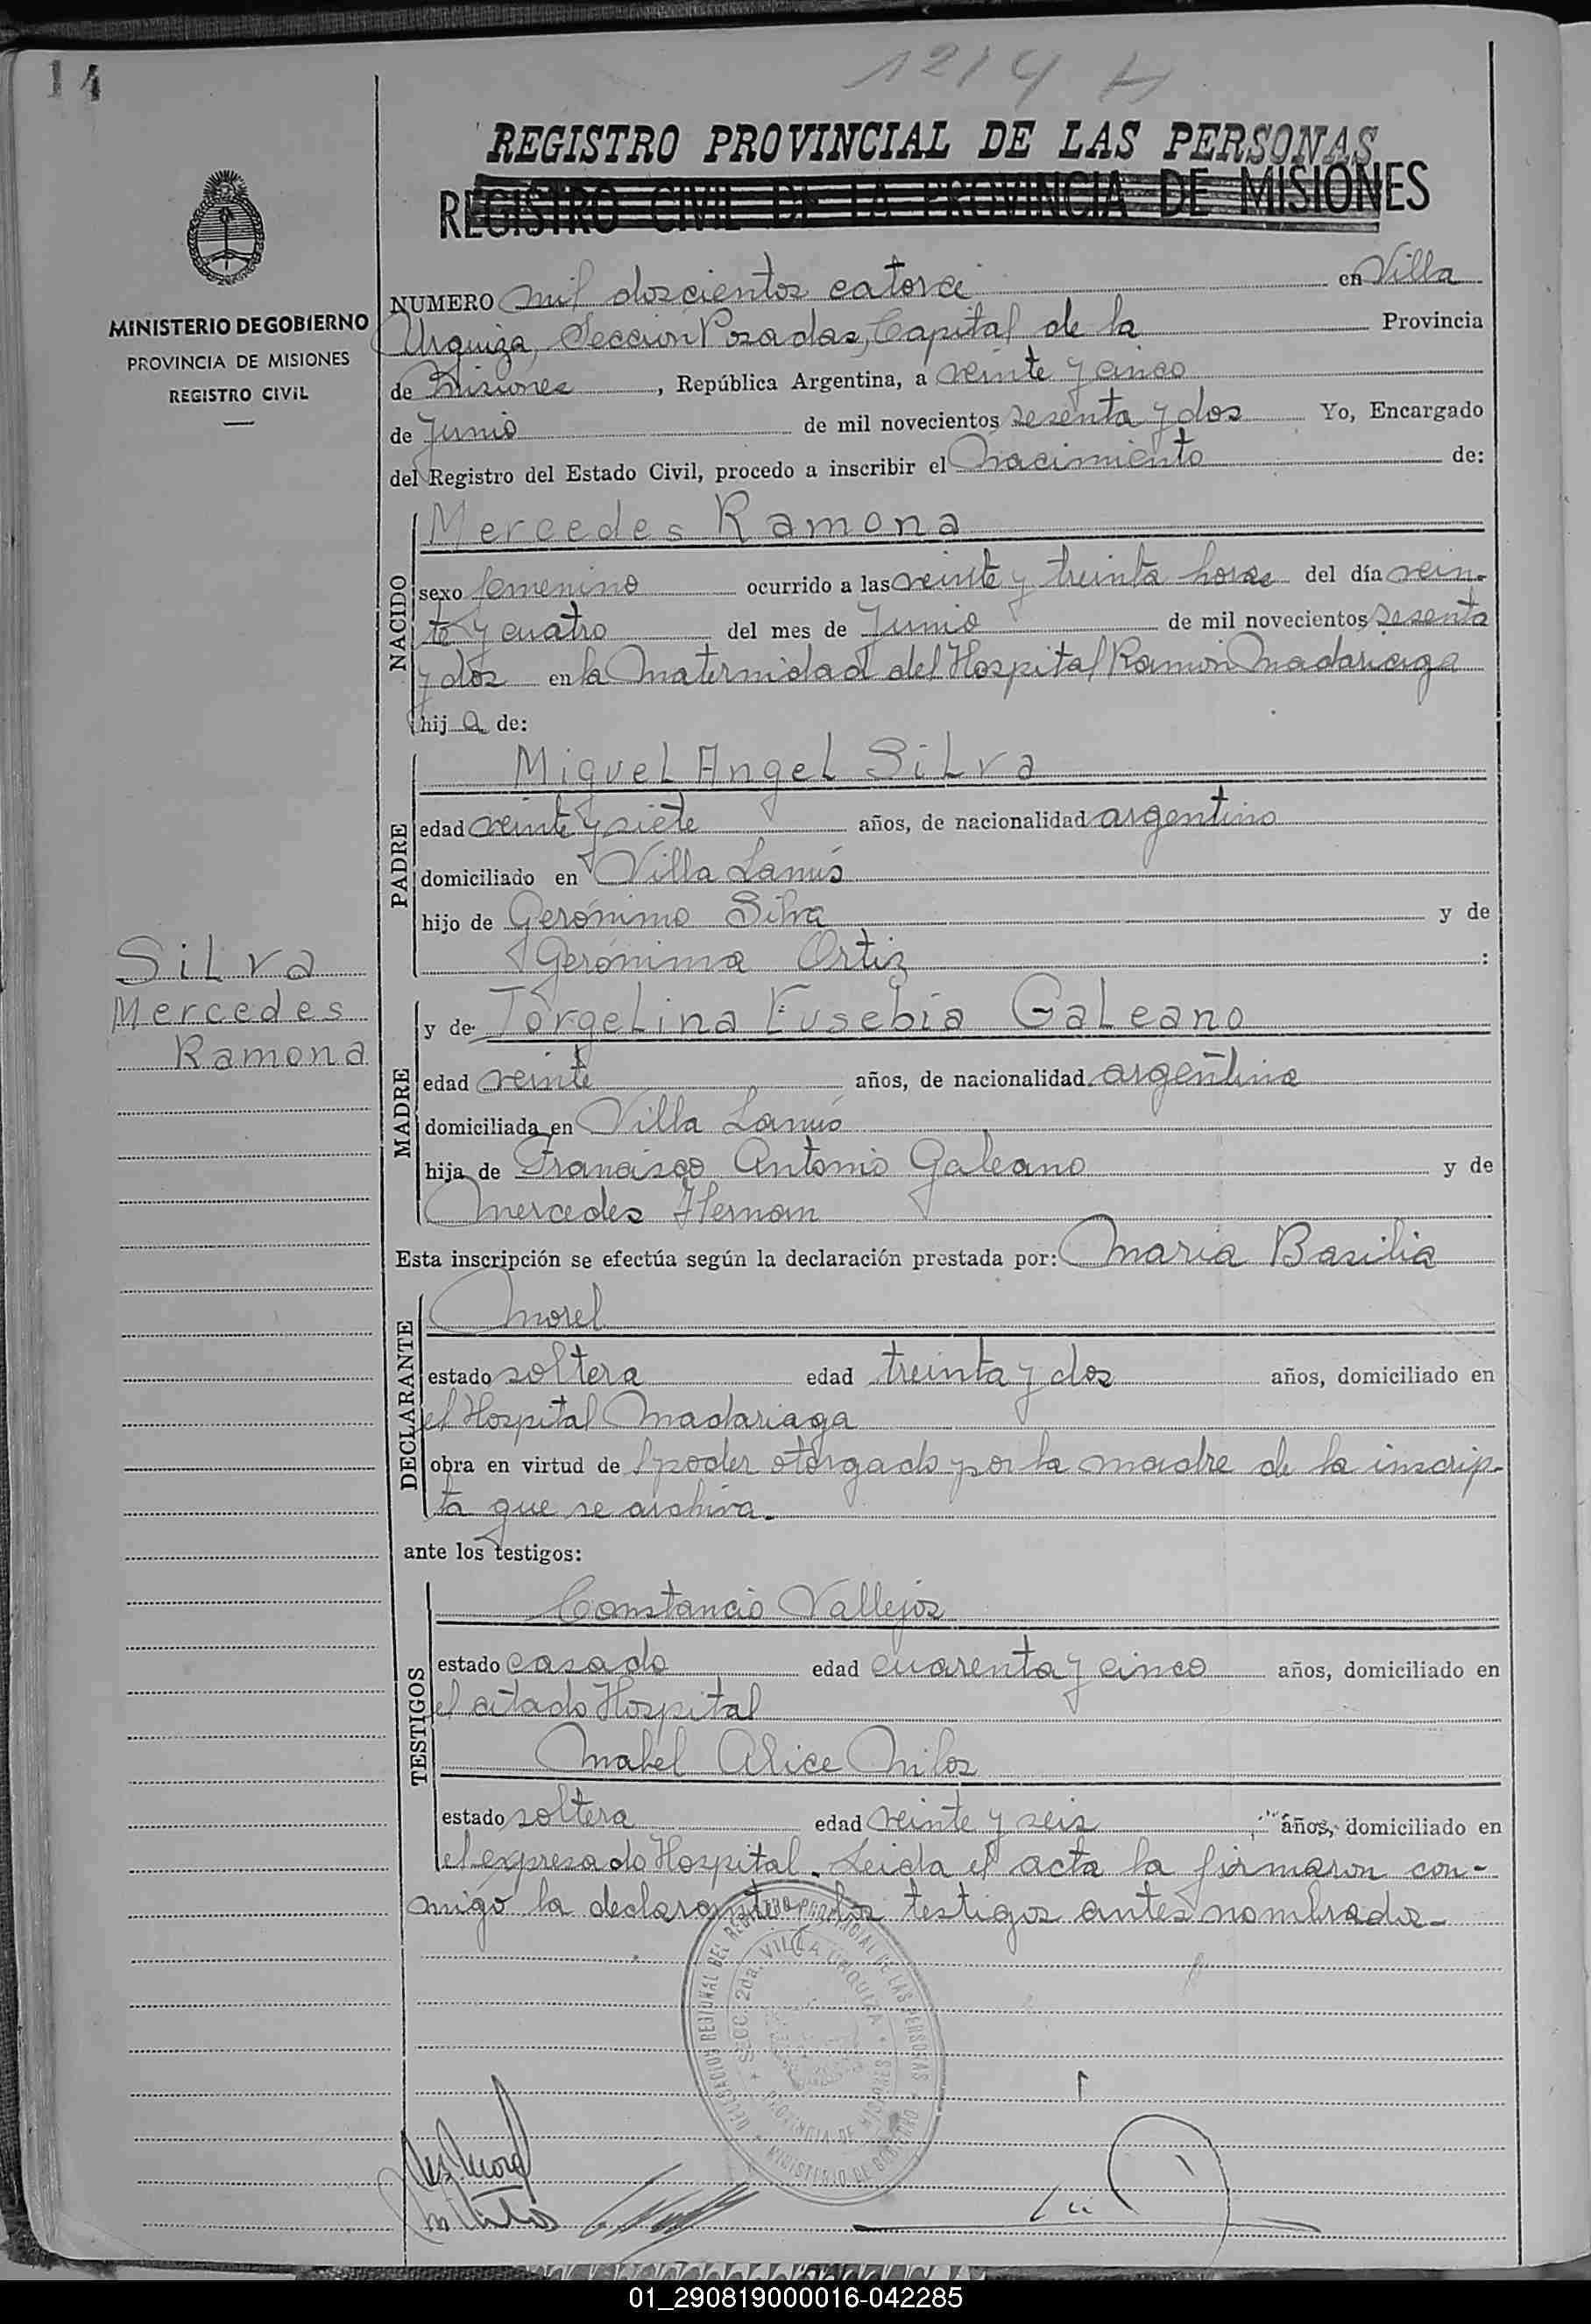 14
1214 H
REGISTRO PROVINCIAL DE LAS PERSONAS
REGISTRO CIVIL DE LA PROVINCIA DE MISIONES
MINISTERIO DE GOBIERNO
PROVINCIA DE MISIONES
REGISTRO CIVIL
NUMERO mil doscientos catorce en Villa
Urquiza, Sección Posadas, Capital de la Provincia
de Misiones, República Argentina, a veinte y cinco
de Junio de mil novecientos sesenta y dos Yo, Encargado
del Registro del Estado Civil, procedo a inscribir el nacimiento de:
NACIDO
Mercedes Ramona
sexo femenino ocurrido a las veinte y treinta horas del día vein-
te y cuatro del mes de Junio de mil novecientos sesenta
y dos en la Maternidad del Hospital Ramón Madariaga
hij a de:
PADRE
Miguel Angel Silva
edad veinte y siete años, de nacionalidad argentino
domiciliado en Villa Lanús
hijo de Gerónimo Silva y de
Gerónima Ortiz :
Silva
Mercedes
Ramona
MADRE
y de Jorgelina Eusebia Galeano
edad veinte años, de nacionalidad argentina
domiciliada en Villa Lanús
hija de Francisco Antonio Galeano y de
Mercedes Hernan
Esta inscripción se efectúa según la declaración prestada por: Maria Basilia
DECLARANTE
Morel
estado soltera edad treinta y dos años, domiciliado en
el Hospital Madariaga
obra en virtud de poder otorgado por la madre de la inscrip-
ta que se archiva.
ante los testigos:
TESTIGOS
Constancio Vallejos
estado casado edad cuarenta y cinco años, domiciliado en
el citado Hospital
Mabel Alice Milos
estado soltera edad veinte y seis años, domiciliado en
el expresado Hospital. Leida el acta la firmaron con-
migo la declarante y los testigos antes nombrados-
DELEGACION REJIONAL DEL REGISTRO PROVINCIAL DE LAS PERSONAS
SECC. 2da. VILLA URQUIZA
PROVINCIA DE MISIONES
MINISTERIO DE GOBIERNO
01_290819000016-042285